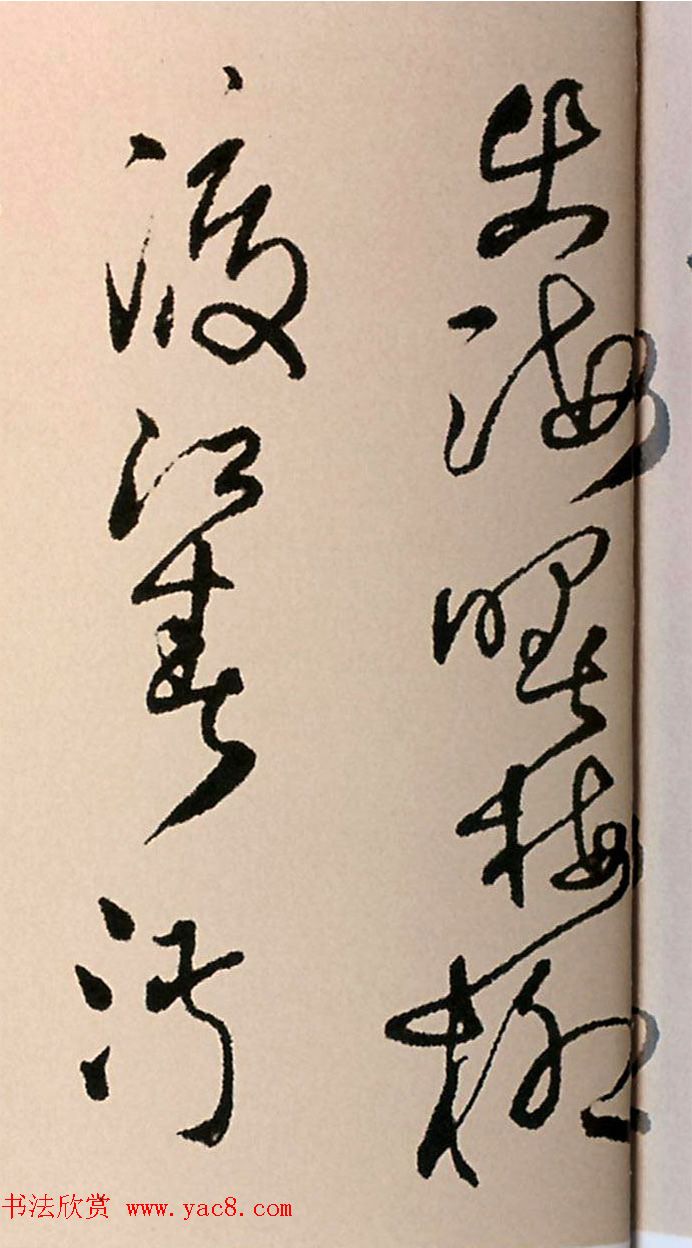 出海曙梅柳
渡江春淑
书法欣赏 www.yac8.com